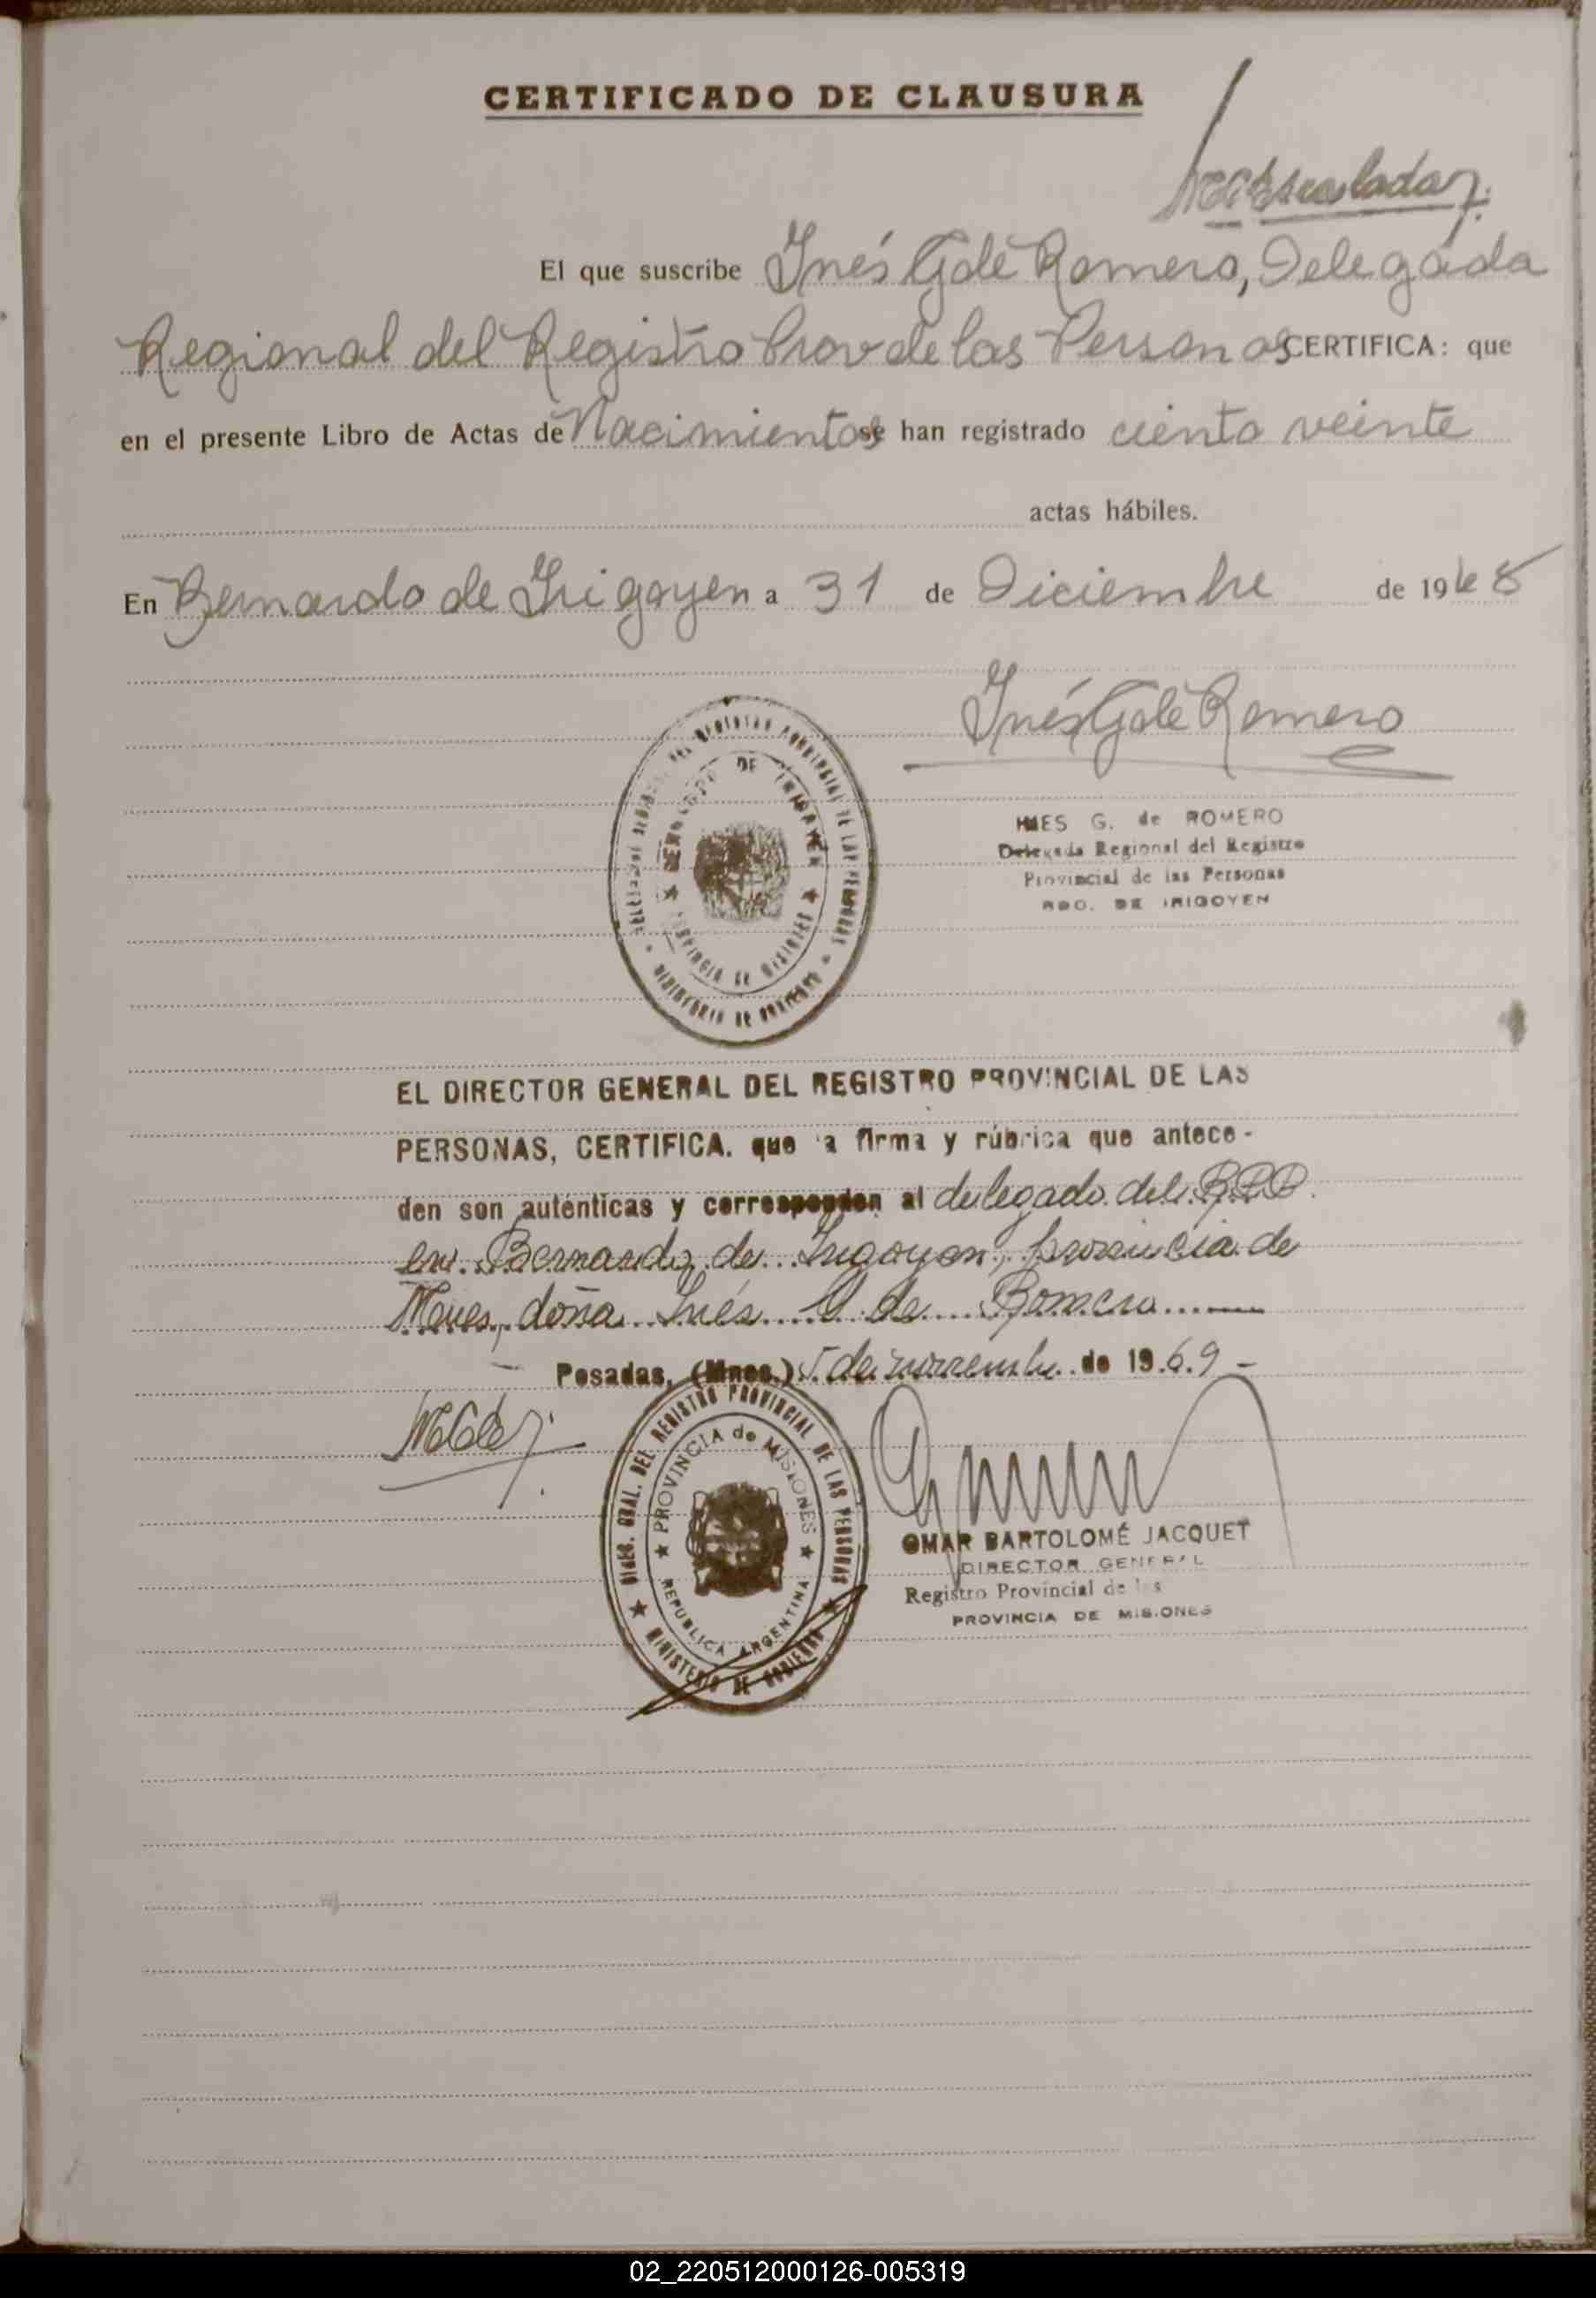 CERTIFICADO DE CLAUSURA
El que suscribe Inés G de Romero, Delegada
Regional del Registro Prov de las Personas CERTIFICA: que
en el presente Libro de Actas de Nacimientos se han registrado ciento veinte
actas hábiles.
En Bernardo de Irigoyen a 31 de Diciembre de 1968
Inés G de Romero
INES G. de ROMERO
Delegada Regional del Registro
Provincial de las Personas
BDO. DE IRIGOYEN
DEL REGISTRO PROVINCIAL DE LAS PERSONAS
BERNARDO DE IRIGOYEN
PROVINCIA DE MISIONES
MINISTERIO DE GOBIERNO
EL DIRECTOR GENERAL DEL REGISTRO PROVINCIAL DE LAS
PERSONAS, CERTIFICA. que la firma y rúbrica que antece-
den son autenticas y corresponden al delegado del R.P.P.
en Bernardo de Irigoyen, provincia de
doña Inés G. de Romero
Posadas, (Mnes.) 5 de noviembre de 1969 -
DIREC. GRAL. DEL REGISTRO PROVINCIAL DE LAS PERSONAS
PROVINCIA de MISIONES
REPUBLICA ARGENTINA
MINISTERIO DE GOBIERNO
OMAR BARTOLOMÉ JACQUET
DIRECTOR GENERAL
Registro Provincial de las
PROVINCIA DE MISIONES
02_220512000126-005319